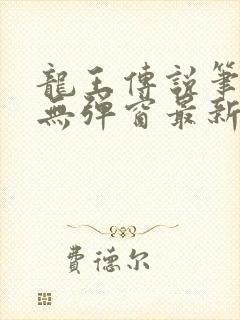 龍王傳說筆
無彈窗最新
費德尔